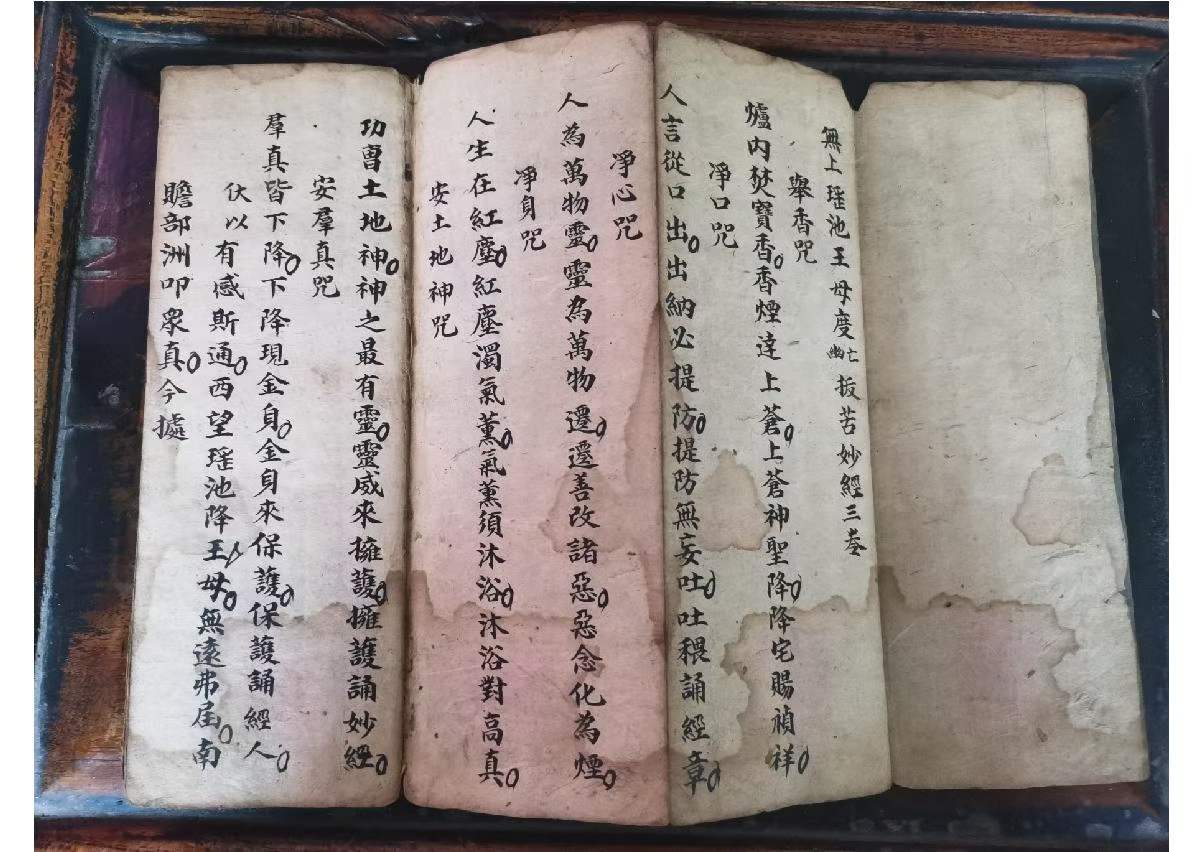 無上瑤池王母度亡幽拔苦妙經三卷
舉香咒
爐內焚寶香香煙達上蒼上蒼神聖降降宅賜禎祥
淨口咒
人言從口出出納必提防提防無妄吐吐穢誦經章
淨心咒
人為萬物靈靈為萬物遷遷善改諸惡惡念化為煙
淨身咒
人生在紅塵紅塵濁氣薰氣薰須沐浴沐浴對高真
安土地神咒
功曹土地神神之最有靈靈威來擁護擁護誦妙經
安羣真咒
羣真皆下降下降現金身金身來保護保護誦經人
伏以有感斯通西望瑤池降王母無遠弗屆南
贍部洲叩眾真今據